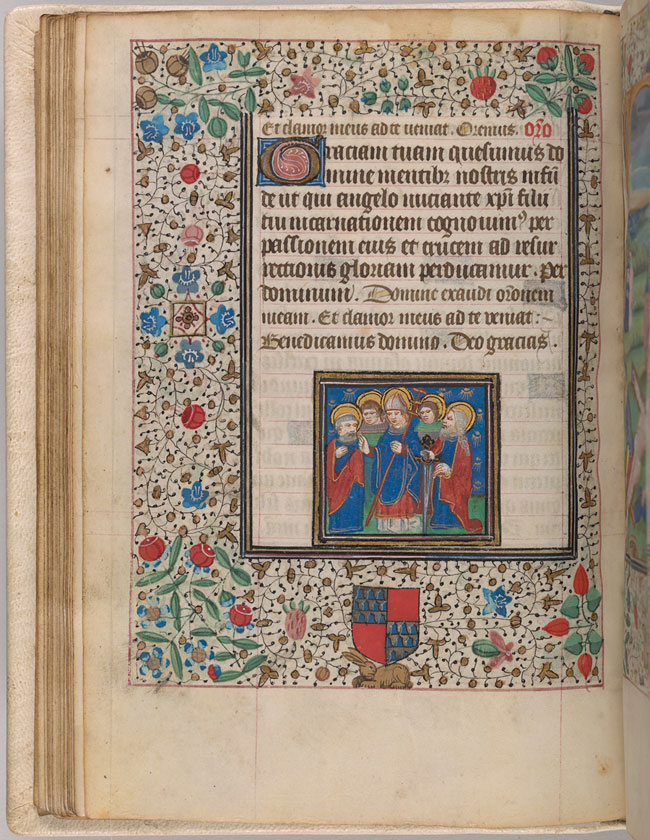 Et clamor meus ad te ueniat. Oremus. or̃o
Graciam tuam quesumus do
mine mentibꝫ nostris infū
de ut qui angelo nūciante xp̄i filii
tui incarnationem cognouimꝰ per
passionem eius et crucem ad resur
rectionis gloriam perducamur. Per
dominum. Domine exaudi or̃onem
meam. Et clamor meus ad te veniat :
Benedicamus domino. Deo gracias.